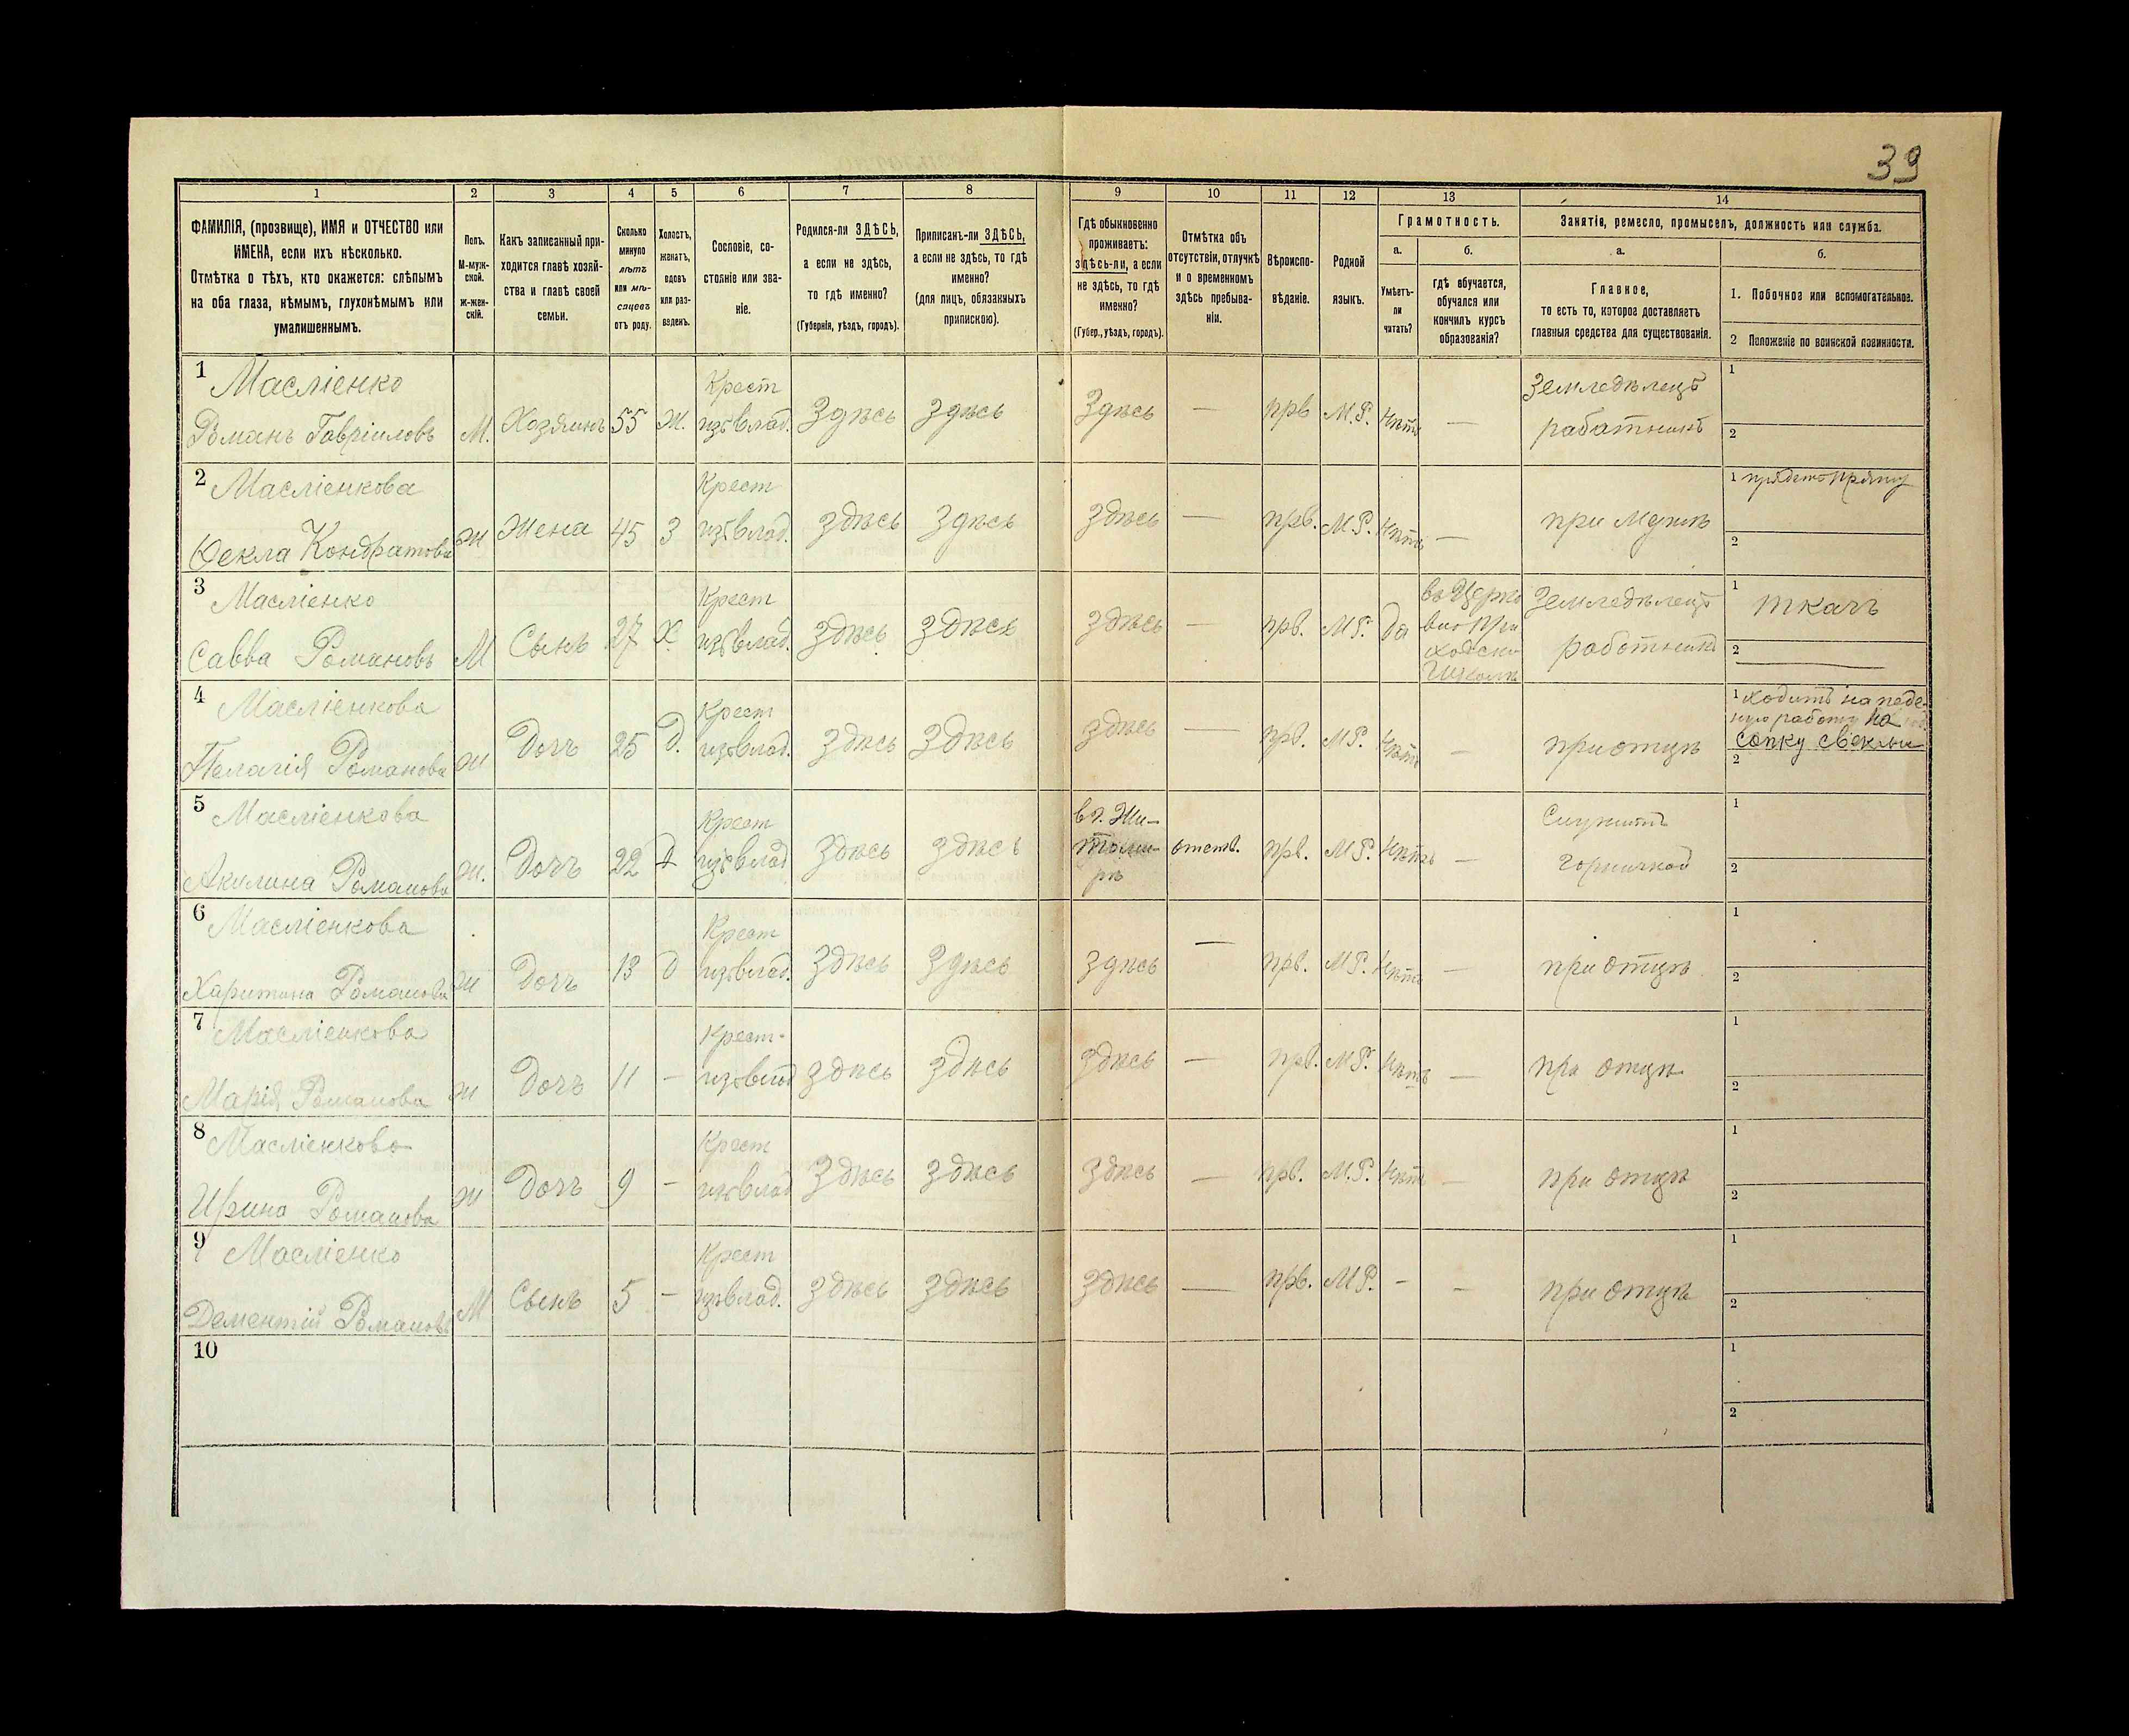 39
1 2 3 4 5 6 7 8 9 10 11 12 13 14
ФАМИЛІЯ, (прозвище), ИМЯ и ОТЧЕСТВО или
ИМЕНА, если ихъ нѣсколько.
Отмѣтка о тѣхъ, кто окажется: слѣпымъ
на оба глаза, нѣмымъ, глухонѣмымъ или
умалишеннымъ.
Полъ.
М-муж-
ской.
ж-жен-
скій.
Какъ записанный при-
ходится главѣ хозяй-
ства и главѣ своей
семьи.
Сколько
минуло
лѣтъ
или мѣ-
сяцевъ
отъ роду.
Холостъ,
женатъ,
вдовъ
или раз-
веденъ.
Сословіе, со-
стояніе или зва-
ніе.
Родился-ли ЗДѢСЬ,
а если не здѣсь,
то гдѣ именно?
(Губернія, уѣздъ, городъ).
Приписанъ-ли ЗДѢСЬ,
а если не здѣсь, то гдѣ
именно?
(для лицъ, обязанныхъ
припискою).
Гдѣ обыкновенно
проживаетъ:
здѣсь-ли, а если
не здѣсь, то гдѣ
именно?
(Губер., уѣздъ, городъ).
Отмѣтка объ
отсутствіи, отлучкѣ
и о временномъ
здѣсь пребыва-
ніи.
Вѣроиспо-
вѣданіе.
Родной
языкъ.
Грамотность.
а.
Умѣетъ-
ли
читать?
б.
гдѣ обучается,
обучался или
кончилъ курсъ
образованія?
Занятія, ремесло, промыселъ, должность или служба.
а.
Главное,
то есть то, которое доставляетъ
главныя средства для существованія.
б.
1. Побочное или вспомогательное.
2 Положеніе по воинской повинности.
1 Масліенко
Романъ Гавріиловъ М. Хозяинъ 55 Ж. Крест
изъ влад. Здѣсь Здѣсь Здѣсь — прв М.Р. Нѣтъ — Земледѣлецъ
работникъ 1
2
2 Масліенкова
Фекла Кондратова ж Жена 45 З Крест
изъ влад. здѣсь Здѣсь здѣсь — прв. М.Р. Нѣтъ — при мужѣ 1 прядетъ пряжу
2
3 Масліенко
Савва Романовъ М Сынъ 27 Х. Крест
изъ влад. здѣсь здѣсь здѣсь — прв. М.Р. да въ Церко
вно при
ходско
Школѣ Земледѣлецъ
работникъ 1 ткачъ
2 —
4 Масліенкова
Пелагія Романова ж Дочъ 25 Д. Крест
изъ влад. здѣсь здѣсь здѣсь — прв. М.Р. Нѣтъ — при отцѣ 1 ходитъ на поде-
ную работу на
сопку свеклы
2
5 Масліенкова
Акилина Романова ж. Дочъ 22 Д Крест
изъ влад здѣсь здѣсь в г. Жи-
томи-
рѣ отств. прв. М.Р. Нѣтъ — Служитъ
горничной 1
2
6 Масліенкова
Харитина Романова ж Дочъ 13 Д Крест
изъ влад. здѣсь здѣсь здѣсь — прв. М.Р. Нѣтъ — при отцѣ 1
2
7 Масліенкова
Марія Романова ж Дочъ 11 — Крест-
изъ влад здѣсь здѣсь здѣсь — прв. М.Р. Нѣтъ — при отцѣ 1
2
8 Масліенкова
Ирина Романова ж Дочъ 9 — Крест
изъ влад здѣсь здѣсь здѣсь — прв. М.Р. Нѣтъ — при отцѣ 1
2
9 Масліенко
Дементій Романовъ М Сынъ 5 — Крест
изъ влад. здѣсь здѣсь здѣсь — прв. М.Р. — — при отцѣ 1
2
10 1
2